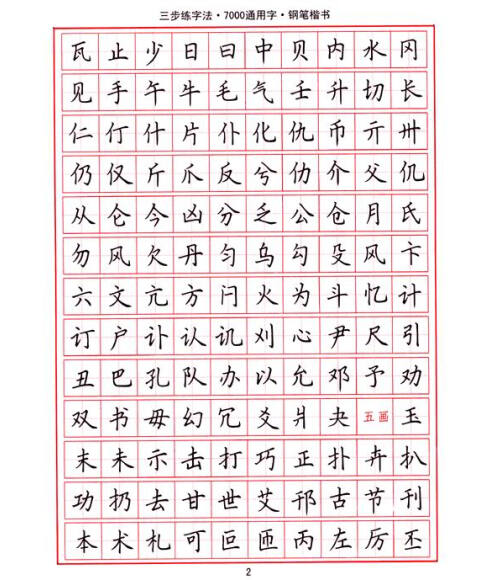 三步练字法·7000通用字·钢笔楷书
瓦止少日曰中贝内水冈
见手午牛毛气壬升切长
仁仃什片仆化仇币亓卅
仍仅斤爪反兮仂介父仉
从仑今凶分乏公仓月氏
勿风欠丹匀乌勾殳风卞
六文亢方闩火为斗忆计
订户讣认讥刈心尹尺引
丑巴孔队办以允邓予劝
双书毋幻冗爻爿夬五画玉
末未示击打巧正扑卉扒
功扔去甘世艾邗古节刊
本术札可叵匝丙左厉丕
2